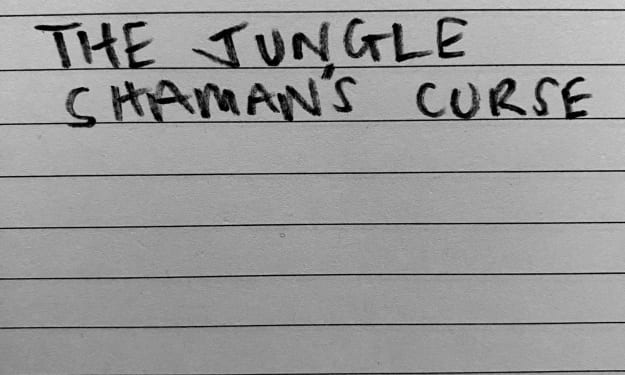 THE JUNGLE
SHAMAN'S CURSE